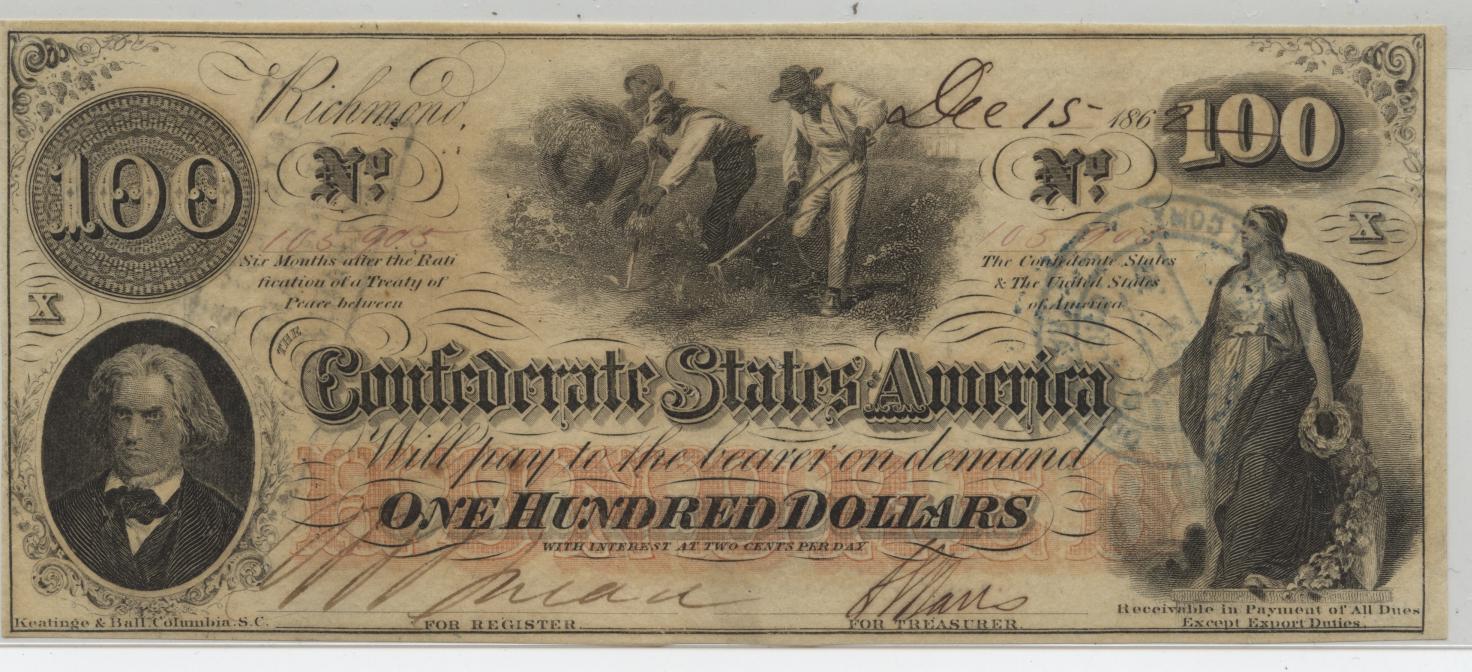 Richmond,
Dec 15 1862
100
100
No
No
105 905
105 905
Six Months after the Rati
fication of a Treaty of
Peace between
The Confederate States
& The United States
of America.
X
X
THE
Confederate States America
Will pay to the bearer on demand
HUNDRED
ONE HUNDRED DOLLARS
WITH INTEREST AT TWO CENTS PER DAY
FOR REGISTER.
FOR TREASURER.
Keatinge & Ball, Columbia, S.C.
Receivable in Payment of All Dues
Except Export Duties.